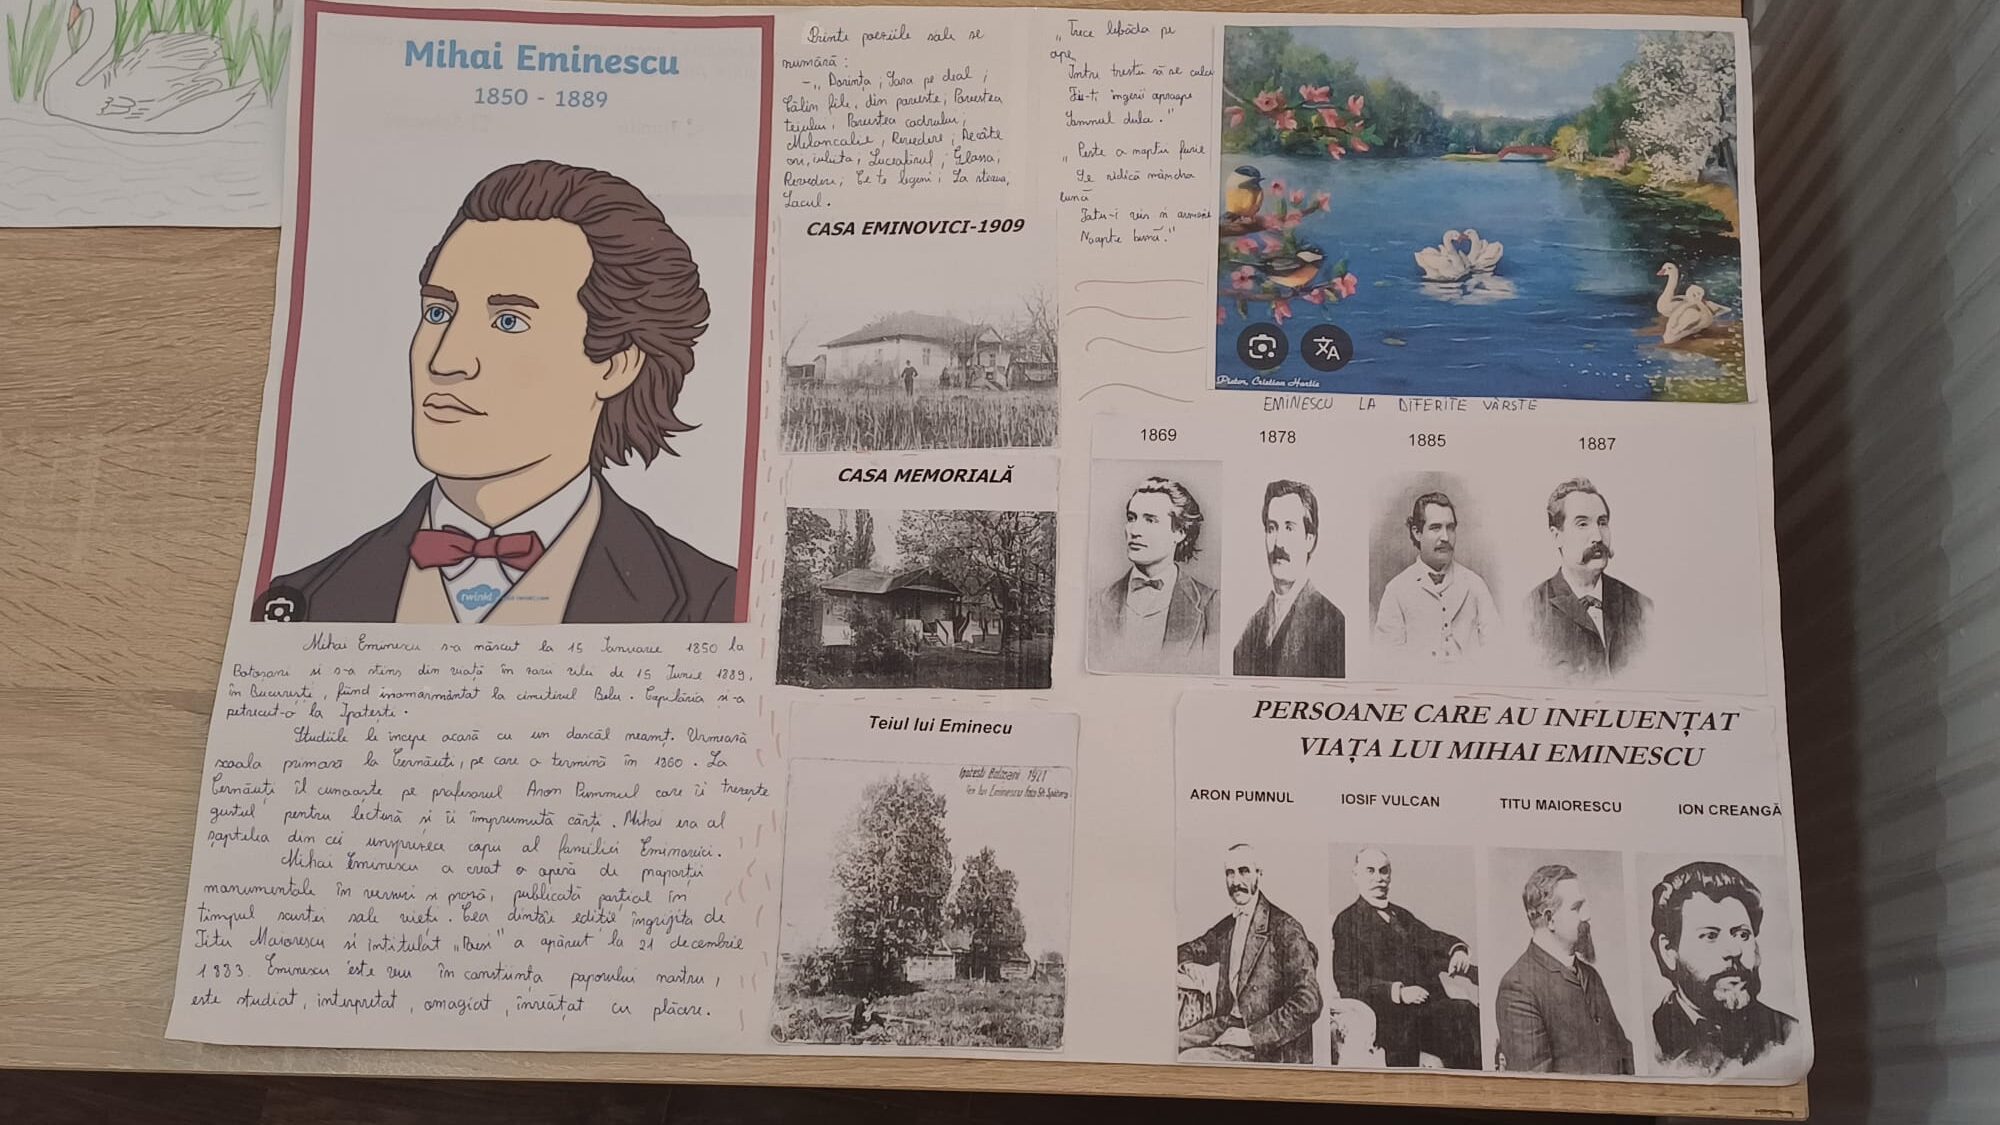 Mihai Eminescu
1850 - 1889
twinkl
Mihai Eminescu s-a născut la 15 Ianuarie 1850 la
Botoșani și s-a stins din viață în zilei de 15 Iunie 1889,
în București, fiind înmormântat la cimitirul Belu. Copilăria și-a
petrecut-o la Ipotești.
Studiile le începe acasă cu un dascăl neamț. Urmează
școala primară la Cernăuți, pe care o termină în 1860. La
Cernăuți îl cunoaște pe profesorul Aron Pummul care îi trezește
gustul pentru lectură și îi împrumută cărți. Mihai era al
șaptelea din cei unsprezece copii al familiei Eminovici.
Mihai Eminescu a creat o operă de proporții
monumentale în versuri și proză, publicată parțial în
timpul scurtei sale vieți. Cea dintâi ediție îngrijită de
Titu Maiorescu și intitulat „Poesi" a apărut la 21 decembrie
1883. Eminescu este viu în conștiința poporului nostru,
este studiat, interpretat, omagiat, învățat cu plăcere.
Printe poeziile sale se
numără:
-„ Dorința; Sara pe deal;
Călin file, din poveste; Povestea
teiului, Povestea codrului,
Melancolie, Revedere; De câte
ori, iubita, Luceafărul; Glossa,
Revedere; Ce te legeni; La steaua,
Lacul.
CASA EMINOVICI-1909
CASA MEMORIALĂ
Teiul lui Eminecu
Ipotesti Botosani 1921
Teiu lui Eminescu Foto
„ Trece lebăda pe
ape,
Între trestii să se culce
Fie-ți îngerii aproape
Somnul dulce."
„ Peste a nopții feerie
Se ridică mândra
lună
Totu-i vis și armonie
Noapte bună."
Pictor, Cristian Harlis
EMINESCU LA DIFERITE VÂRSTE
1869 1878 1885 1887
PERSOANE CARE AU INFLUENȚAT
VIAȚA LUI MIHAI EMINESCU
ARON PUMNUL IOSIF VULCAN TITU MAIORESCU ION CREANGĂ